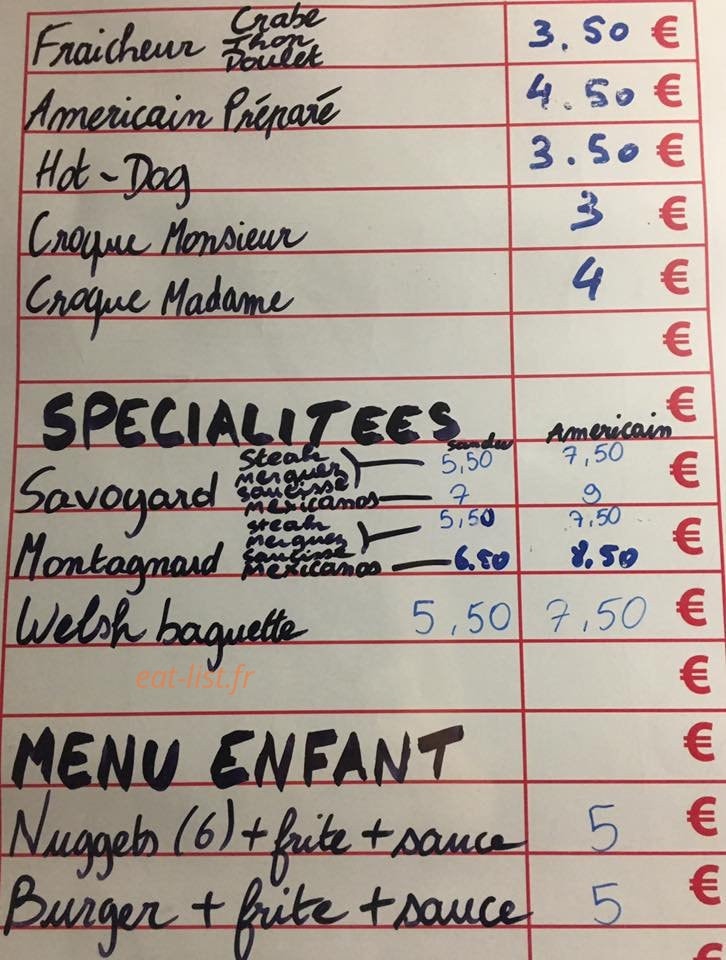 Fraicheur Crabe 3.50 €
Thon
Poulet
Americain Préparé 4.50 €
Hot-Dog 3.50 €
Croque Monsieur 3 €
Croque Madame 4 €
€
SPECIALITEES €
sandw Americain
Savoyard steak 5,50 7,50 €
merguez
saucisse
mexicanos 7 9
Montagnard steak 5,50 7,50 €
merguez
saucisse
mexicanos 6.50 8.50
Welsh baguette 5,50 7,50 €
eat-list.fr €
MENU ENFANT €
Nuggets (6) + frite + sauce 5 €
Burger + frite + sauce 5 €
€